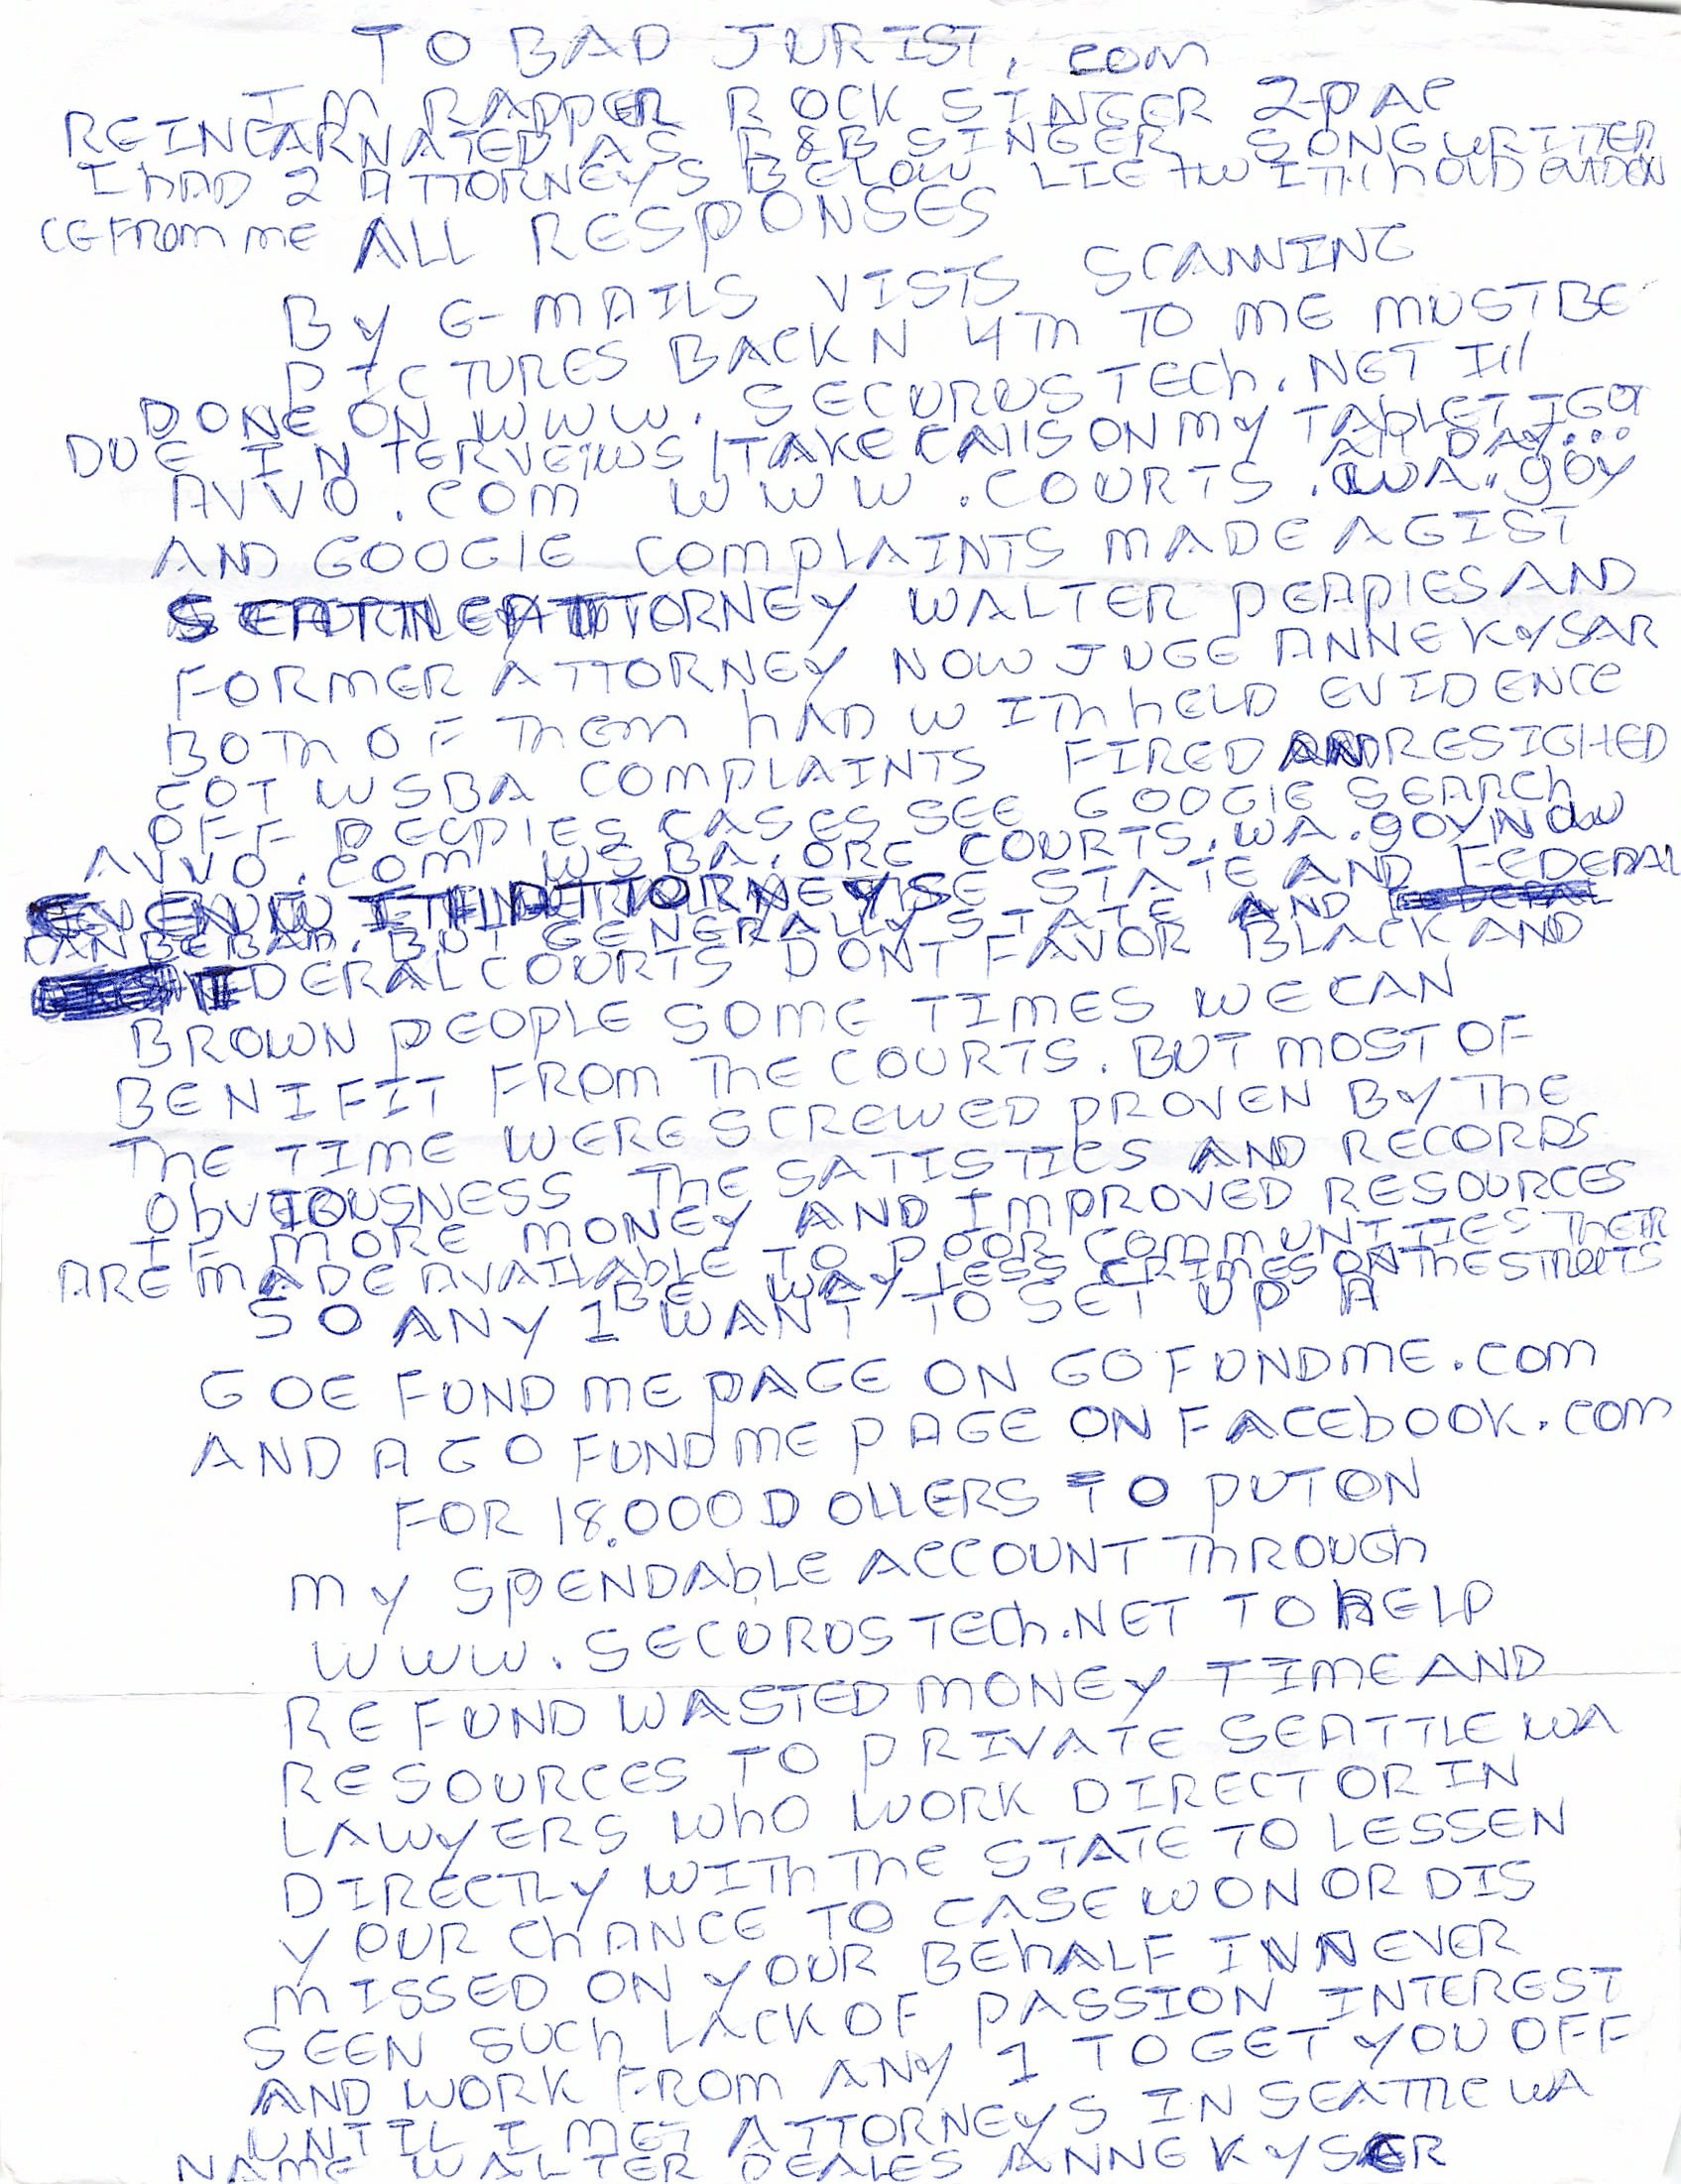 TO BAD JURIST, com
I'M RAPPER ROCK SINGER 2-PAC
REINCARNATED AS R&B SINGER SONGWRITTER
I hAD 2 ATTORNEYS BELOW LIE +WITHhOLD EVIDEN
CE FROM ME ALL RESPONSES
BY G-MAILS VISTS SCANNING
PICTURES BACK N 4TH TO ME MUST BE
DONE ON WWW.SECURUSTECh.NET I'll
DOE INTERVEIWS/TAKE CAllS ON MY TAbLET I GOT
All DAY...
AVVO.COM WWW.COURTS.WA.gOV
AND GOOGlE COMPLAINTS MADE AGIST
ATTORNEY WALTER PEAPlES AND
FORMER ATTORNEY NOW JUGE ANNE KYSAR
BOTH OF ThEM hAD WITHhELD EVIDENCE
GOT WSBA COMPLAINTS FIRED AND RESIGHED
OFF PEOPlES CASES SEE GOOGlE SEARCh
AVVO.COM WSBA.ORG COURTS.WA.gOV
STATE AND FEDERAL
CAN BE BAD. BUT GENERALLY STATE AND
DERAL COURTS DONT FAVOR BLACK AND
BROWN PEOPLE SOME TIMES WE CAN
BENIFIT FROM ThE COURTS. BUT MOST OF
ThE TIME WERE SCREWED PROVEN BY ThE
ObVIOUSNESS ThE SATISTICS AND RECORDS
IF MORE MONEY AND IMPROVED RESOURCES
ARE MADE AVAILAbLE TO POOR COMMUNITIES THEIR
BE WAY LESS CRIMES ON ThE STREETS
SO ANY 1 WANT TO SET UP A
GOE FUND ME PAGE ON GOFUNDME.COM
AND A GO FUND ME PAGE ON FACEbOOK.COM
FOR 18.000 DOLLERS TO PUT ON
MY SPENDAbLE ACCOUNT ThROUGh
WWW.SECURUSTECh.NET TO hELP
REFUND WASTED MONEY TIME AND
RESOURCES TO PRIVATE SEATTLE WA
LAWYERS WhO WORK DIRECT OR IN
DIRECTLY WITH ThE STATE TO LESSEN
YOUR ChANCE TO CASE WON OR DIS
MISSED ON YOUR BEhALF IN NEVER
SEEN SUCh LACK OF PASSION INTEREST
AND WORK FROM ANY 1 TO GET YOU OFF
UNTIL I MET ATTORNEYS IN SEATTLE WA
NAME WALTER PEALES ANNE KYSER